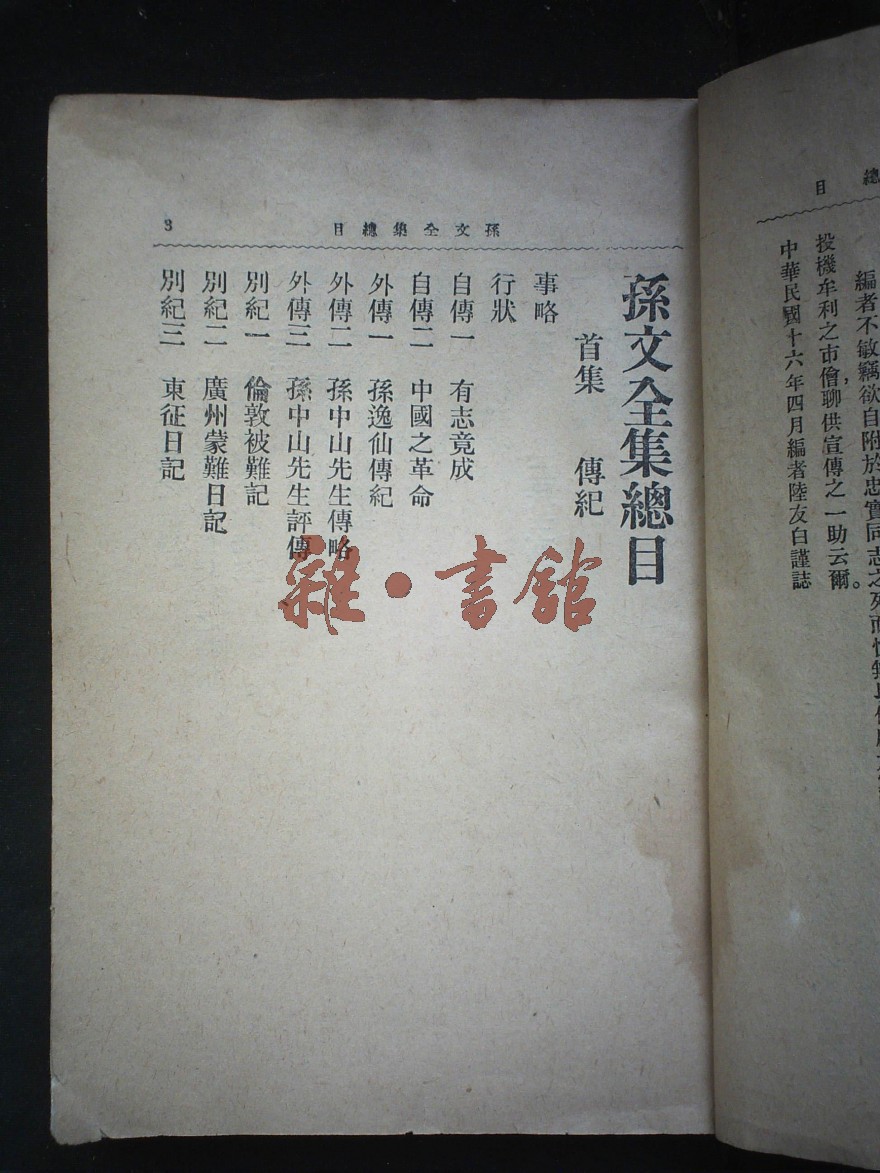 總
目
編者不敏竊欲自附於忠實同志之列而
投機牟利之市儈,聊供宣傳之一助云爾。
中華民國十六年四月編者陸友白謹誌
孫文全集總目
3
孫文全集總目
首集 傳紀
事略
行狀
自傳一 有志竟成
自傳二 中國之革命
外傳一 孫逸仙傳紀
外傳二 孫中山先生傳略
外傳三 孫中山先生評傳
別紀一 倫敦被難記
別紀二 廣州蒙難日記
別紀三 東征日記
雜·書館